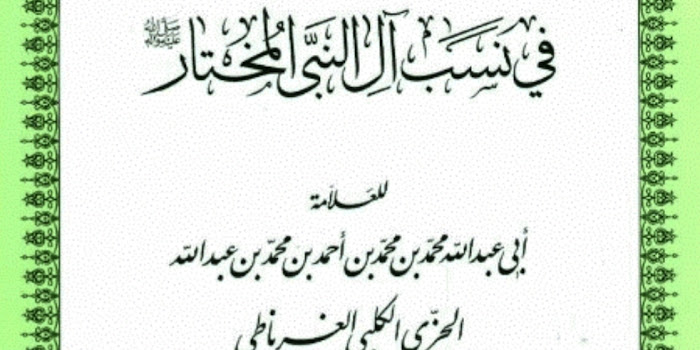 في نسب آل النبي المختار ﷺ
للعلامة
أبي عبد الله محمد بن محمد بن أحمد بن محمد بن عبد الله
الجزي الكلبي الغرناطي